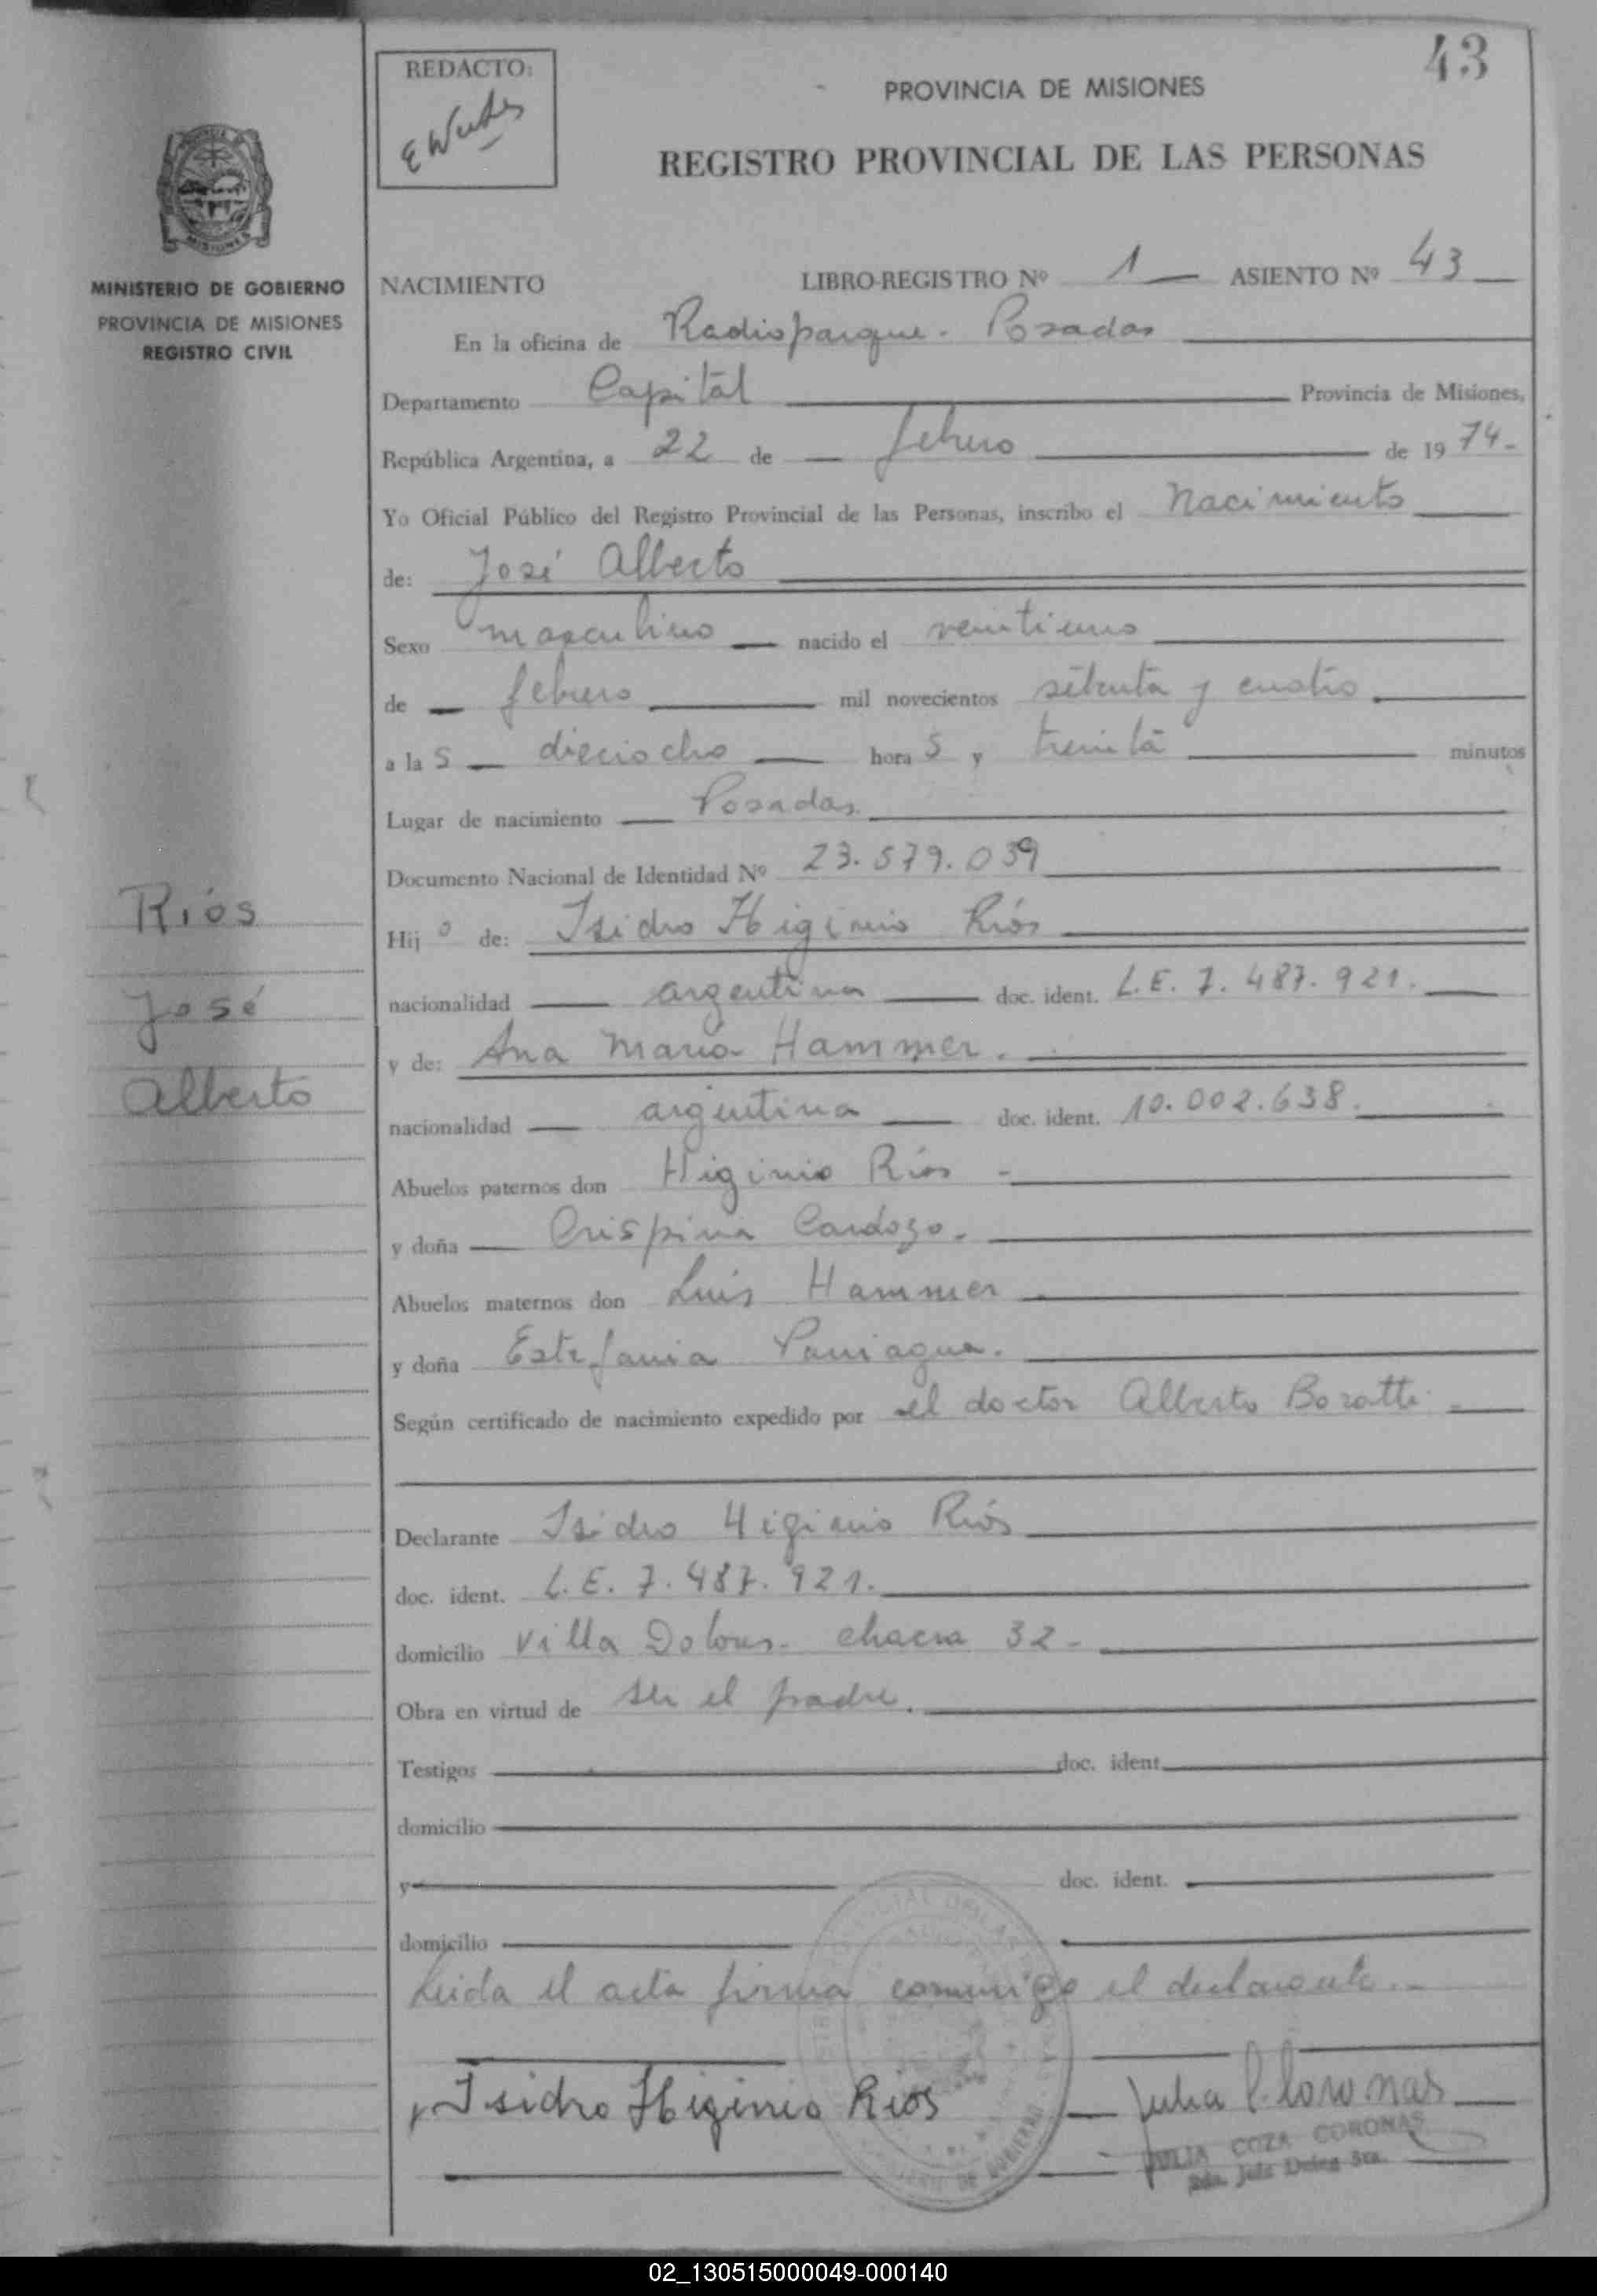 43
REDACTO:
PROVINCIA DE MISIONES
REGISTRO PROVINCIAL DE LAS PERSONAS
MISIONES
MINISTERIO DE GOBIERNO
PROVINCIA DE MISIONES
REGISTRO CIVIL
NACIMIENTO LIBRO-REGISTRO Nº 1 ASIENTO Nº 43
En la oficina de Radioparque - Posadas
Departamento Capital Provincia de Misiones,
República Argentina, a 22 de febrero de 1974-
Yo Oficial Público del Registro Provincial de las Personas, inscribo el Nacimiento
de: José Alberto
Sexo masculino nacido el veintiuno
de febrero mil novecientos setenta y cuatro
a la s dieciocho hora s y treinta minutos
Lugar de nacimiento Posadas.
Documento Nacional de Identidad Nº 23.579.039
Hij o de: Isidro Higinio Ríos
nacionalidad argentina doc. ident. L.E. 7.487.921.
y de: Ana María Hammer.
nacionalidad argentina doc. ident. 10.002.638.
Abuelos paternos don Higinio Ríos -
y doña Crispina Cardozo.
Abuelos maternos don Luis Hammer
y doña Estefania Paniagua.
Según certificado de nacimiento expedido por el doctor Alberto Boratti
Declarante Isidro Higinio Ríos
doc. ident. L.E. 7.487.921.
domicilio Villa Dolores - chacra 32 -
Obra en virtud de ser el padre.
Testigos doc. ident.
domicilio
y doc. ident.
domicilio
Leida el acta firma conmigo el declarante.-
Isidro Higinio Rios
Julia C. Coronas
JULIA COZA CORONAS
Ríos
José
Alberto
02_130515000049-000140